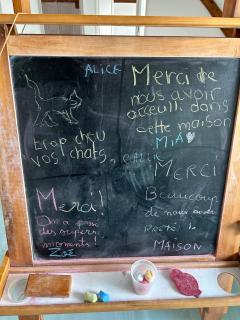 ALICE
trop cheu
vos chats,
Merci de
nous avoir
acceuilli dans
cette maison
MIA
Merci!
On a passé
des supers
moments!
Zoé
MERCI
Beaucoup
de nous avoir
Preté la
MAISON